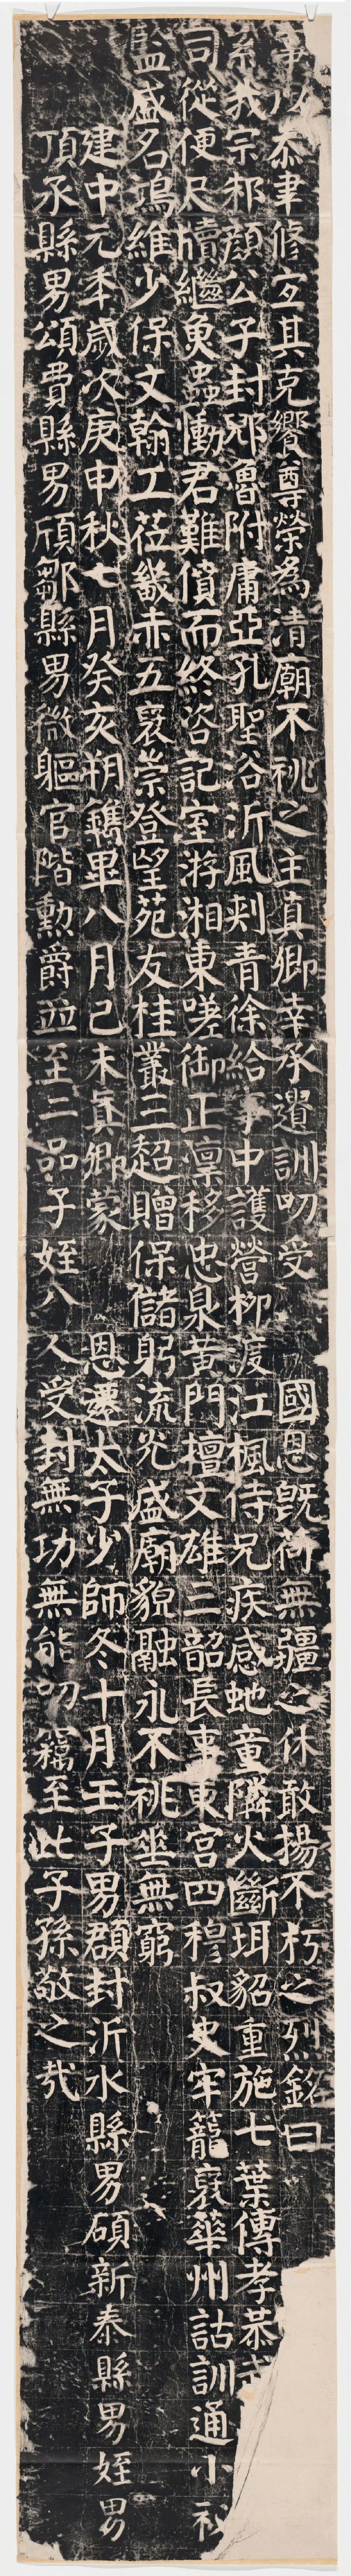 以忝聿修亦且克饗尊榮為清廟不祧之主真卿幸承遺訓叨受國恩既荷無疆之休敢揚不朽之烈銘曰
系我宗邾顏公子封郳魯附庸亞孔聖浴沂風刺青徐給事中護營柳渡江楓侍兄疾感虵童隣火斷珥貂重施七葉傳孝恭
司從便尺牘繼臾蟲慟君難僨而終洽記室游湘東嗟御正稟移忠臬黃門壇文雄三韶長事東宮四穆叔史牢籠裒華州詁訓通小祕
監盛名鴻維少保文翰工莅畿赤五裒崇登望苑友桂叢三超贈保儲躬流光盛廟貌融永不祧垂無窮
建中元年歲次庚申秋七月癸亥朔鐫畢八月己未真卿蒙恩遷太子少師冬十月壬子男頵封沂水縣男碩新泰縣男姪男
頂承縣男頌費縣男頎鄒縣男微軀官階勳爵竝至二品子姪八人受封無功無能叨竊至此子孫敬之哉